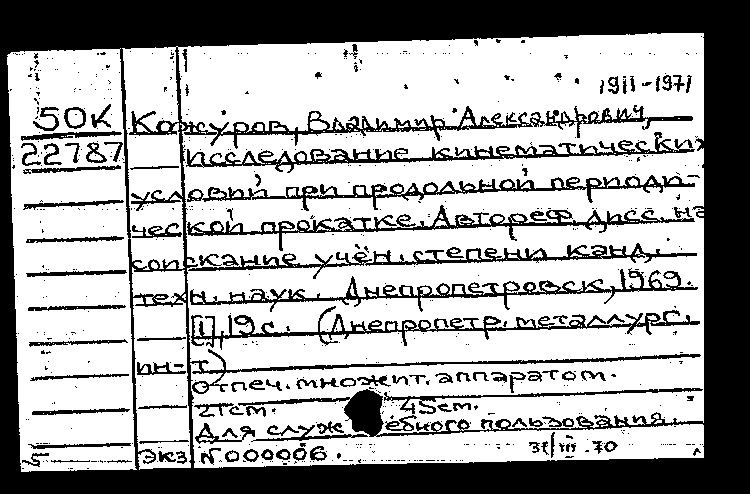 1911-1971
50К Кожуров, Владимир Александрович,
22787 Исследование кинематических
условий при продольной периоди-
ческой прокатке. Автореф. дисс. на
соискание учён. степени канд.
техн. наук. Днепропетровск, 1969.
[1], 19 с. (Днепропетр. металлург.
ин-т)
отпеч. множит. аппаратом.
21см. 45см.
Для служебного пользования.
Экз N000006. 31/III.70